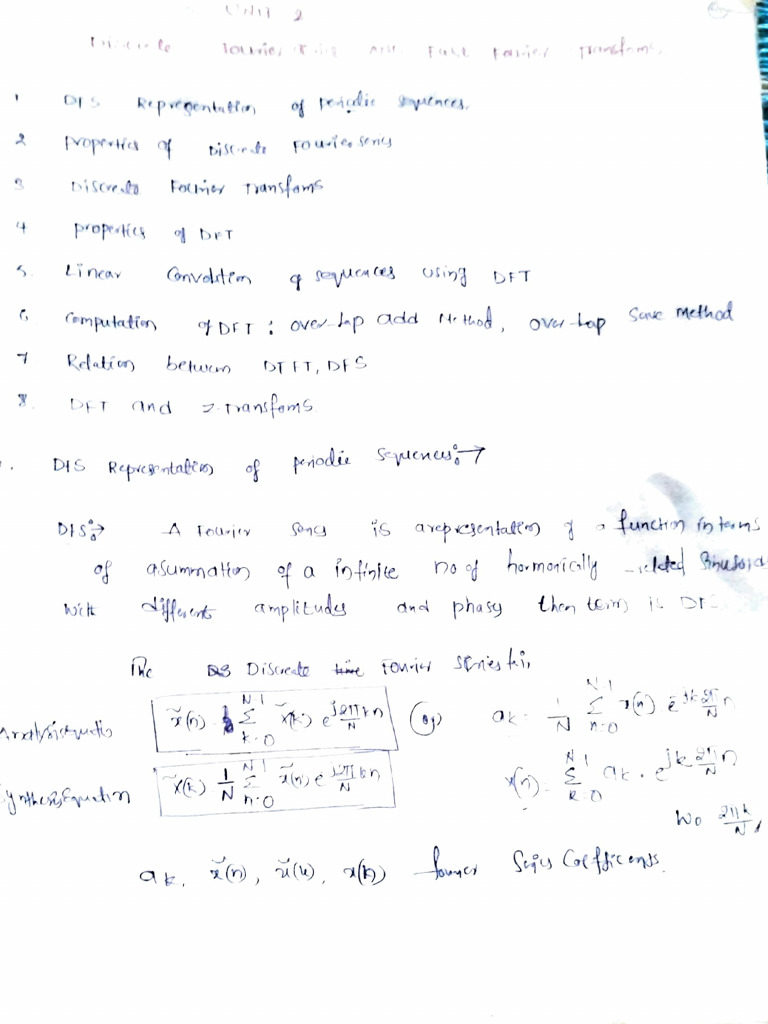 UNIT 2
Discrete Fourier and Fast Fourier Transforms
1 DFS Representation of periodic sequences.
2 properties of Discrete Fourier series
3 Discrete Fourier Transfoms
4 properties of DFT
5. Linear Convolution of sequences using DFT
6 Computation of DFT : over-lap add Method, over-lap Save method
7 Relation between DTFT, DFS
8. DFT and Z-Transfoms
1. DFS Representation of periodic sequences:→
DFS:→ A Fourier series is a representation of a function in terms
of a summation of a infinite no of harmonically related Sinusoid
with different amplitudes and phases then term is DFS.
The Discrete time Fourier series
Analysis equation x̃(n) = Σ_{k=0}^{N-1} x̃(k) e^{j2π/N kn} (or) ak = 1/N Σ_{n=0}^{N-1} x(n) e^{-jk 2π/N n}
Synthesis Equation x̃(k) = 1/N Σ_{n=0}^{N-1} x̃(n) e^{-j2π/N kn} x(n) = Σ_{k=0}^{N-1} ak . e^{jk 2π/N n}
W0 2πk/N,
ak, x̃(n), x̃(k), x(k) fourier Series Coefficents.